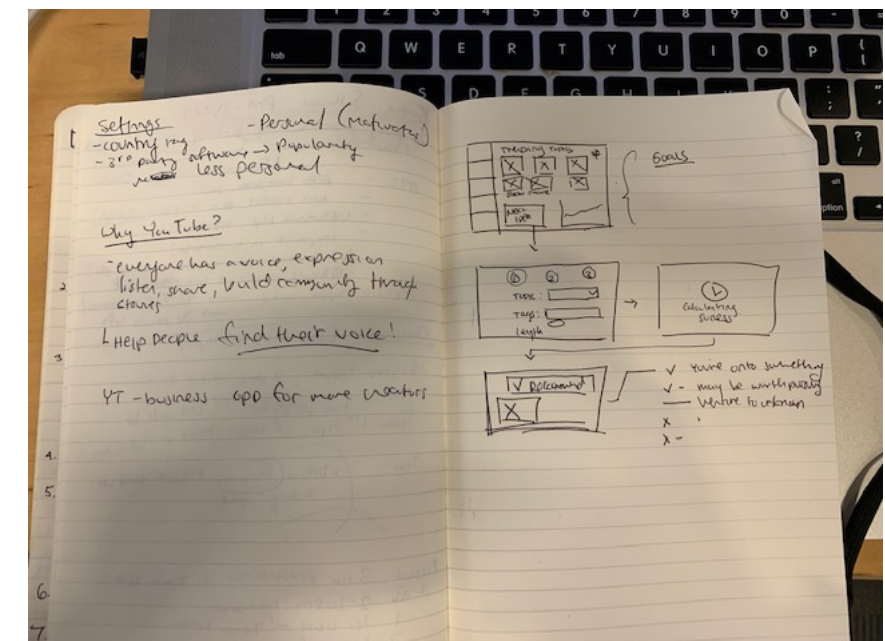 Settings
- Personal (Motivates)
- country
- 3rd party software → Popularity
less personal
Why YouTube?
- everyone has a voice, expression
listen, share, build community through
stories
Help people find their voice!
YT - business app for more creators
1
2
3
4.
5.
6.
7.
Trending Topics
show more
Goals
1 2 3
Topic:
Tags:
length
Calculating
success
✓ Recommended
✓ You're onto something
✓ - may be worth pursuing
— Venture to unknown
x
x -
tab
Q W E R T Y U I O P
S D F G H J
4 5 6 7 8 9 0 -
{ [
: ;
" '
? /
alt
option